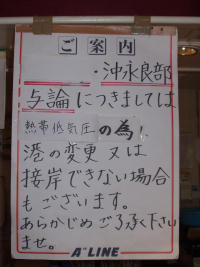 ご案内
・沖永良部
与論につきましては
熱帯低気圧の為、
港の変更又は
接岸できない場合
もございます。
あらかじめご了承下さい
ませ。
A"LINE